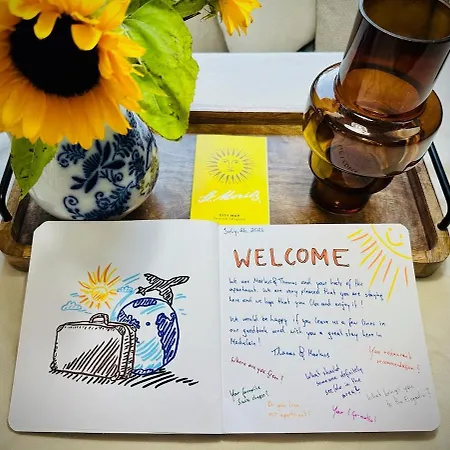 St. Moritz
CITY MAP
July, 26, 2025
WELCOME
We are Markus & Thomas and your hosts of the
apartment. We are very pleased that you are staying
here and we hope that you like and enjoy it!
We would be happy if you leave us a few lines in
our guestbook and wish you a great stay here in
Madulain!
Thomas & Markus
Your restaurant
recommendations!
Where are you from?
What should
someone definitely
see/do in the
area?
Your favourite
What brings you
to the Engadin?
Do you like
our apartment?
Your